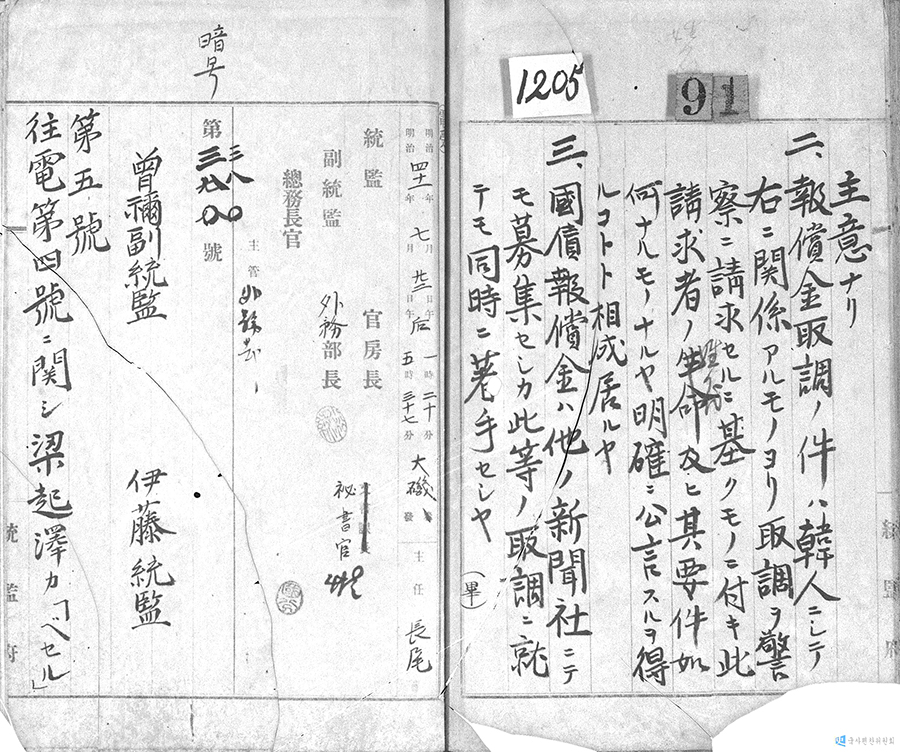 1205
91
主意ナリ
二、報償金取調ノ件ハ韓人ニシテ
右ニ関係アルモノヨリ取調ヲ警
察ニ請求セルニ基クモノニ付キ此
請求者ノ姓命及ヒ其要件如
何ナルモノナルヤ明確ニ公言スルヲ得
ルコトト相成居ルヤ
三、國債報償金ハ他ノ新聞社ニテ
モ募集セシカ此等ノ取調ニ就
テモ同時ニ著手セシヤ
(畢)
暗号
明治四十一年七月廿三日午后一時二十分大磯發
明治 年 月 日午 五時三十七分
主任 長尾
統監 官房長
秘書官
副統監 外務部長
總務長官
主管 外務部
第三八〇〇號
曾禰副統監 伊藤統監
第五號
往電第四號ニ関シ梁起澤カ「ベセル」
統監府
국사편찬위원회